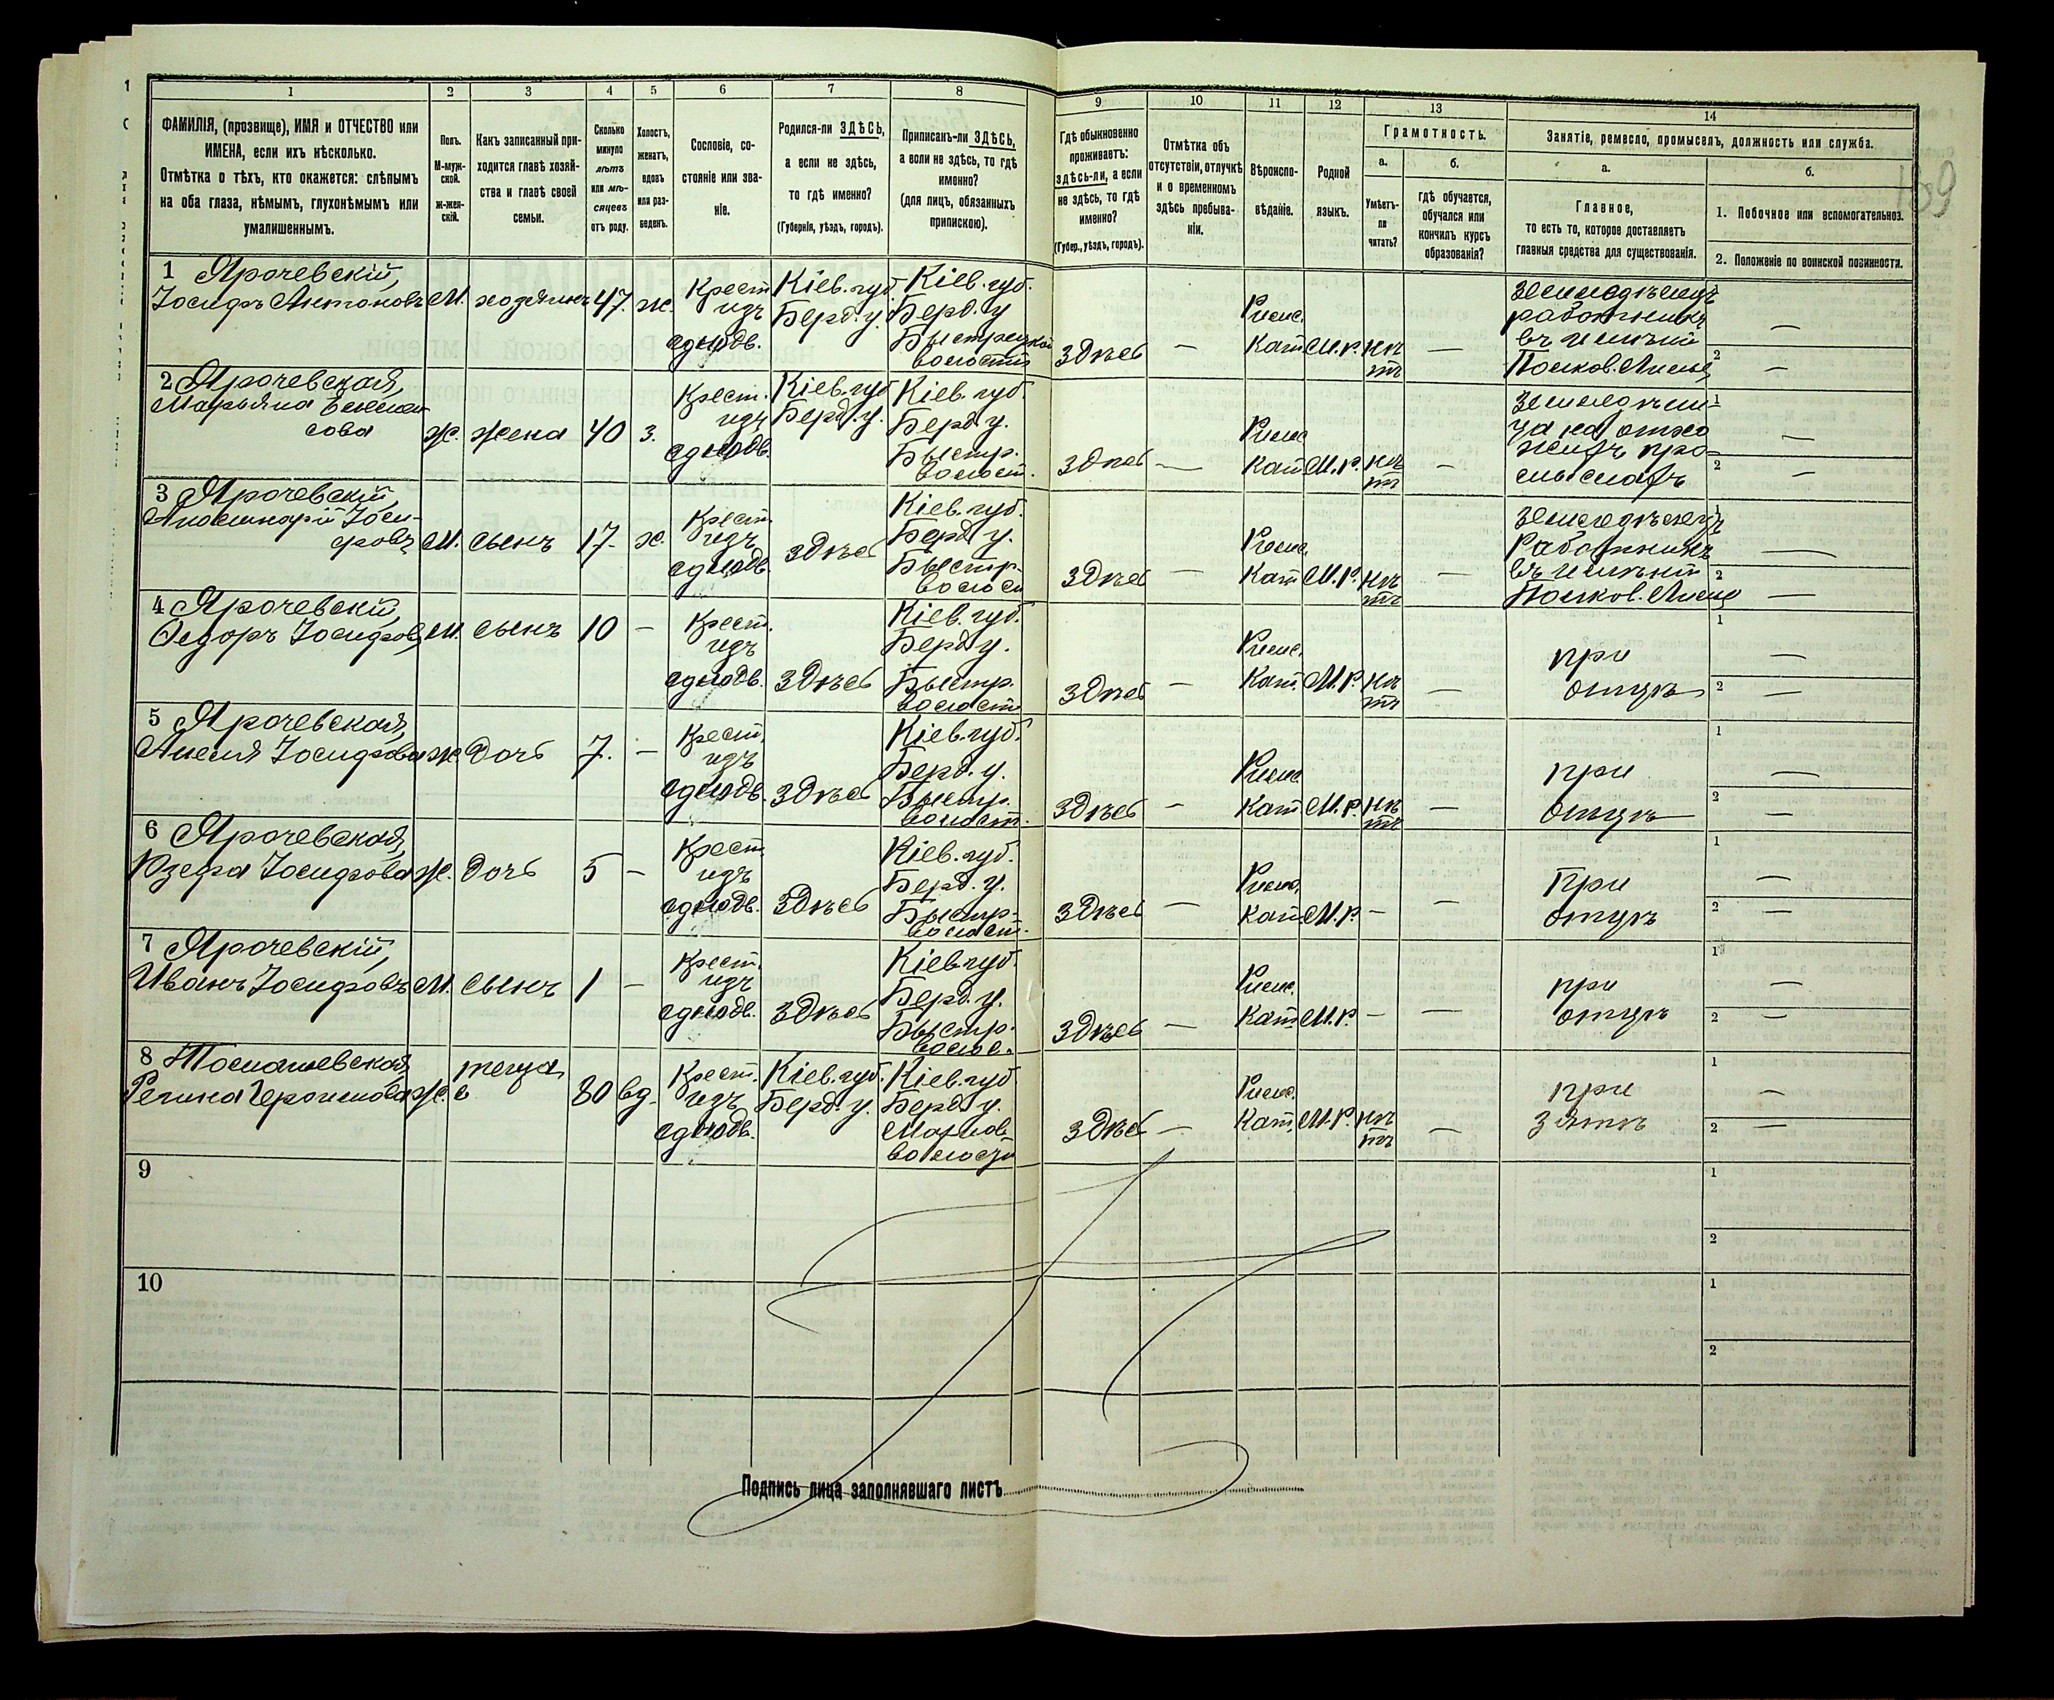 1 2 3 4 5 6 7 8 9 10 11 12 13 14
ФАМИЛІЯ, (прозвище), ИМЯ и ОТЧЕСТВО или
ИМЕНА, если ихъ нѣсколько.
Отмѣтка о тѣхъ, кто окажется: слѣпымъ
на оба глаза, нѣмымъ, глухонѣмымъ или
умалишеннымъ.
Полъ.
М-муж-
ской.
ж-жен-
скій.
Какъ записанный при-
ходится главѣ хозяй-
ства и главѣ своей
семьи.
Сколько
минуло
лѣтъ
или мѣ-
сяцевъ
отъ роду.
Холостъ,
женатъ,
вдовъ
или раз-
веденъ.
Сословіе, со-
стояніе или зва-
ніе.
Родился-ли ЗДѢСЬ,
а если не здѣсь,
то гдѣ именно?
(Губернія, уѣздъ, городъ).
Приписанъ-ли ЗДѢСЬ,
а если не здѣсь, то гдѣ
именно?
(для лицъ, обязанныхъ
припискою).
Гдѣ обыкновенно
проживаетъ:
здѣсь-ли, а если
не здѣсь, то гдѣ
именно?
(Губер., уѣздъ, городъ).
Отмѣтка объ
отсутствіи, отлучкѣ
и о временномъ
здѣсь пребыва-
ніи.
Вѣроиспо-
вѣданіе.
Родной
языкъ.
Грамотность.
а. б.
Умѣетъ-
ли
читать?
гдѣ обучается,
обучался или
кончилъ курсъ
образованія?
Занятіе, ремесло, промыселъ, должность или служба.
а.
Главное,
то есть то, которое доставляетъ
главныя средства для существованія.
б.
1. Побочное или вспомогательное.
2. Положеніе по воинской повинности.
1 Ярочевскій,
Іосифъ Антоновъ
М. хозяинъ 47. ж.
Крест.
изъ
однодв.
Кіев. губ.
Берд. у.
Кіев. губ.
Берд. у
Быстрецкой
волости
Здѣсь —
Римс.
Кат.
М. Р.
нѣ
тъ
—
земледѣлецъ
работникъ
въ имѣніи
—
2 —
2 Ярочевская,
Марьяна
Ж. жена 40 з.
Крест.
изъ
однодв.
Кіев. губ
Берд. у.
Кіев. губ.
Берд. у.
Быстр.
волост.
Здѣсь —
Римс
Кат
М. Р.
нѣ
тъ
—
1
—
2 —
3 Ярочевскій
М. сынъ 17. х.
Крест.
изъ
однодв.
Здѣсь
Кіев. губ.
Берд. у.
Быстр.
Здѣсь —
Римс.
Кат
М. Р.
нѣ
тъ
—
земледѣлецъ
Работникъ
въ имѣніи
1
—
2 —
4 Ярочевскій,
Ѳедоръ Іосифовъ
М. сынъ 10 —
Крест.
изъ
однодв.
Здѣсь
Кіев. губ.
Берд. у.
Быстр.
волости
Здѣсь —
Римс.
Кат.
М. Р.
нѣ
тъ
—
при
отцѣ
1 —
2 —
5 Ярочевская,
Іосифова
ж. Дочь 7. —
Крест.
изъ
однодв.
Здѣсь
Кіев. губ.
Берд. у.
Быстр.
волост.
Здѣсь —
Римс
Кат
М. Р.
нѣ
тъ
—
при
отцѣ
1 —
2 —
6 Ярочевская,
Юзефа Іосифова
Ж. дочь 5 —
Крест.
изъ
однодв.
Здѣсь
Кіев. губ.
Берд. у.
Быстр.
волост.
Здѣсь —
Римс.
Кат
М. Р. — —
При
отцѣ
1 —
2 —
7 Ярочевскій,
Иванъ Іосифовъ
М. сынъ 1 —
Крест.
изъ
однодв.
Здѣсь
Кіев. губ.
Берд. у.
Быстр.
волос.
Здѣсь —
Римс.
Кат
М. Р. — —
при
отцѣ
1 —
2 —
8 Томашевская,
Регина
Ж.
теща
80 вд.
Крест.
изъ
однодв.
Кіев. губ.
Берд. у.
Кіев. губ
Берд. у.
волости
Здѣсь —
Римс.
Кат.
М. Р.
нѣ
тъ
—
при
зятѣ
1 —
2 —
9
1
2
10
1
2
Подпись лица заполнявшаго листъ